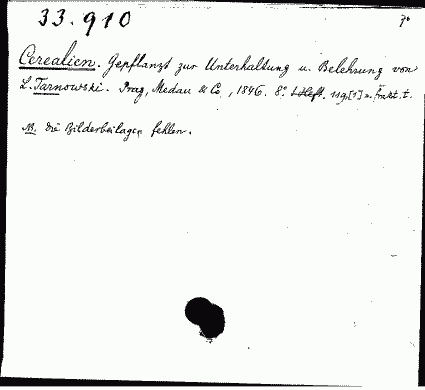 33.910
Cerealien. Gepflanzt zur Unterhaltung u. Belehrung von
L. Tarnowski. Prag, Medau & Co, 1846. 8°. 1 Heft.
NB. die Bilderbeilagen fehlen.